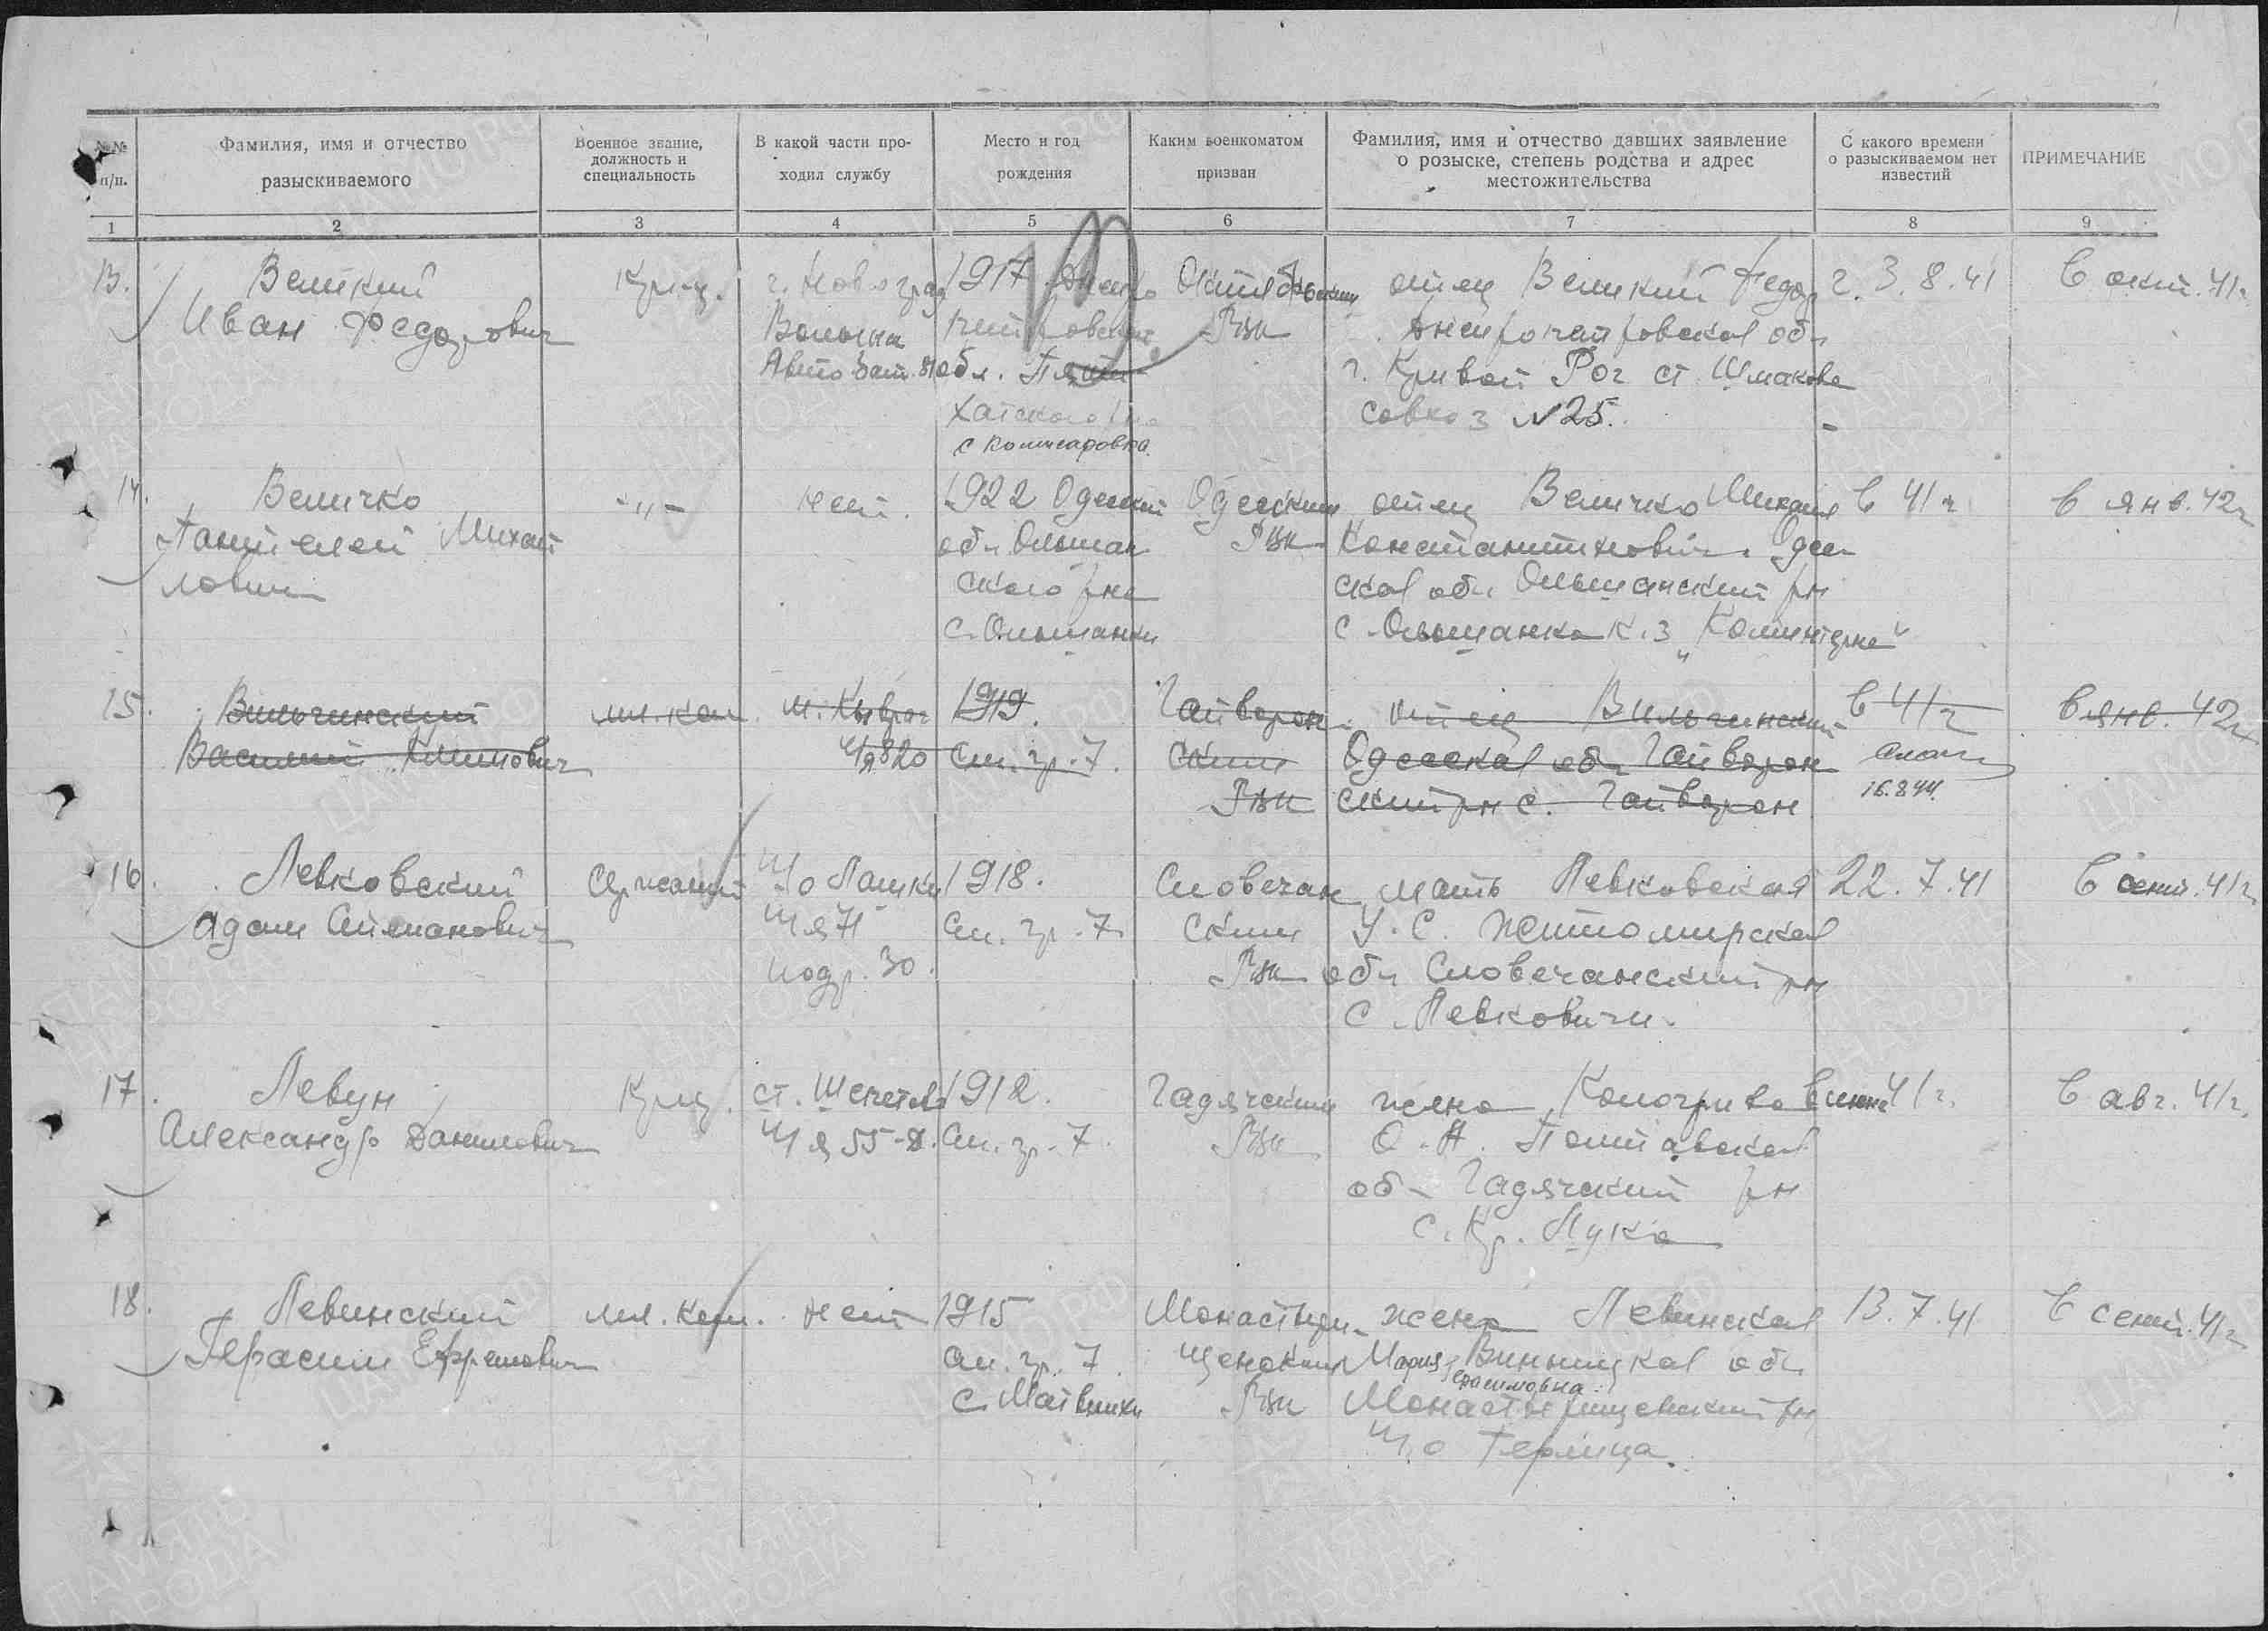 №№ п/п.
Фамилия, имя и отчество разыскиваемого
Военное звание, должность и специальность
В какой части проходил службу
Место и год рождения
Каким военкоматом призван
Фамилия, имя и отчество давших заявление о розыске, степень родства и адрес местожительства
С какого времени о разыскиваемом нет известий
ПРИМЕЧАНИЕ
1 2 3 4 5 6 7 8 9
13.
Великий
Иван Федорович
Кр-ц.
г. Новоград
Волынск
Авто бат.
1917 Днепро
петровская
обл. Пяти
хатского
с Комисаровка
Октябрьским
РВК
отец Великий Федор г.
Днепропетровская обл
г. Кривой Рог ст. Шмаково
совхоз №25.
3.8.41
В окт. 41г.
14.
Величко
Пантелей Михай
лович
-"-
нет.
1922 Одесский
обл. Ольшан
ского рна
с. Ольшанки
Одесским
РВК
отец Величко Михаил
Константинович. Одес
ская обл. Ольшанский рн
с. Ольшанка к.з „Коминтерна"
в 41г
в янв. 42г
15.
Вильчинский
Василий Климович
мл. ком.
820
1919.
См. гр. 7.
Гайворон
ским
РВК
отец Вильчинский
Одесская обл Гайворон
ский рн с. Гайворон
в 41г
16.8.44.
в янв. 42г
16.
Левковский
Адам Симанович
Сержант
подр. 30.
1918.
См. гр. 7.
Словечан
ским
РВК
мать Левковская
У. С. Житомирская
обл Словечанский рн
с. Левковичи.
22.7.41
В сент. 41г
17.
Левун
Александр Данилович
Кр-ц.
ст. Шепетовка
п/я 55-8.
1912.
См. гр. 7.
Гадячским
РВК
жена Кологрива
О. А. Полтавская
об- Гадячский рн
с. Кр. Лука
В июне 41г.
В авг. 41г.
18.
Левинский
Герасим Ефремович
мл. ком.
нет
1915
См. гр. 7
с. Матвиихи
Монастыри-
щенским
РВК
жена Левинская
Мария Герасимовна
Винницкая обл.
Монастырищенский рн
Терлица.
13.7.41
В сент. 41г
ПАМЯТЬ НАРОДА
ЦАМО.РФ